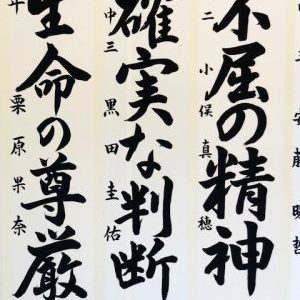 安藤暖哲
不屈の精神
二 小俣真穂
確実な判断
中三 黒田圭佑
生命の尊厳
栗原果奈